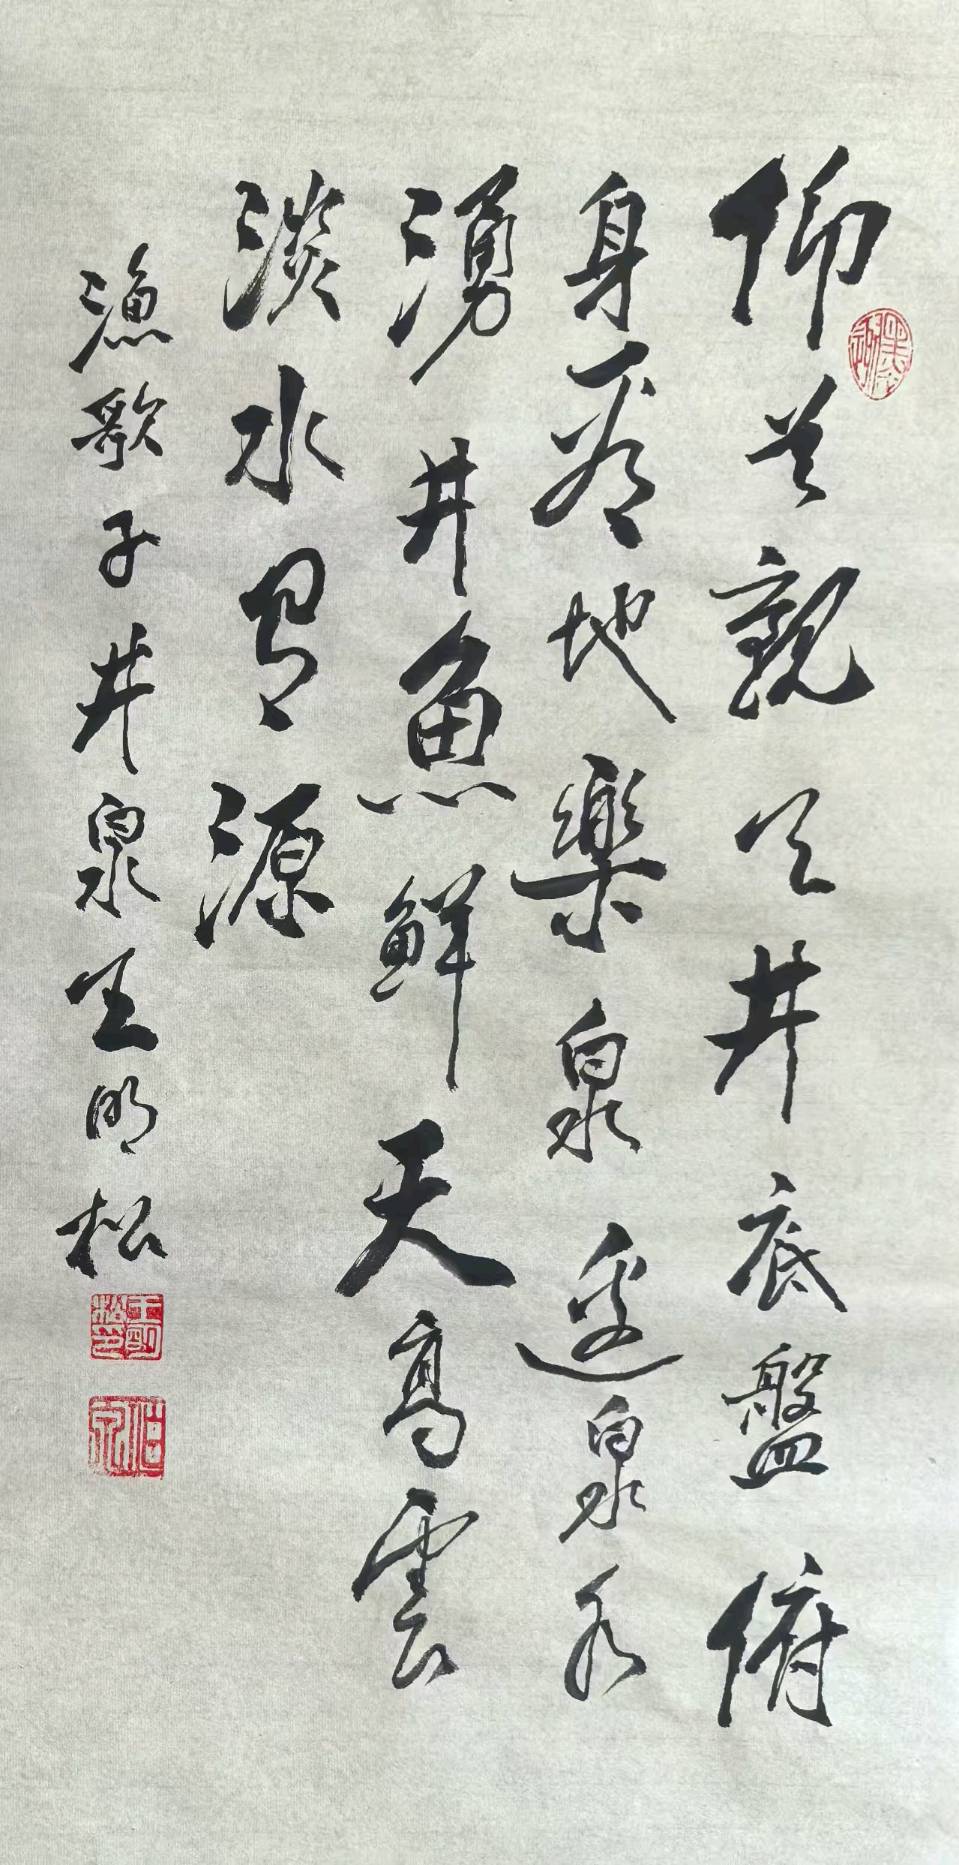 仰首觀天井底盤俯
身地樂泉邊泉水
湧井魚鮮天高雲
淡水源
漁歌子井泉王明松
王明松印